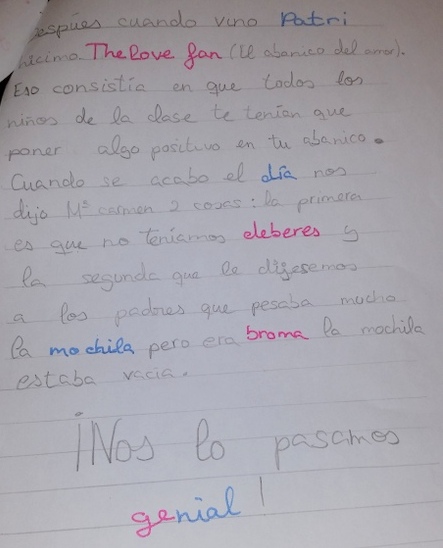 espues cuando vino Patri
hicimo The love fan (El abanico del amor).
Eso consistia en que todos los
niños de la clase te tenian que
poner algo positivo en tu abanico.
Cuando se acabo el día nos
dijo Mª carmen 2 cosas: la primera
es que no teniamos deberes y
la segunda que le dijesemos
a los padres que pesaba mucho
la mochila pero era broma la mochila
estaba vacia.
¡Nos lo pasamos
genial!